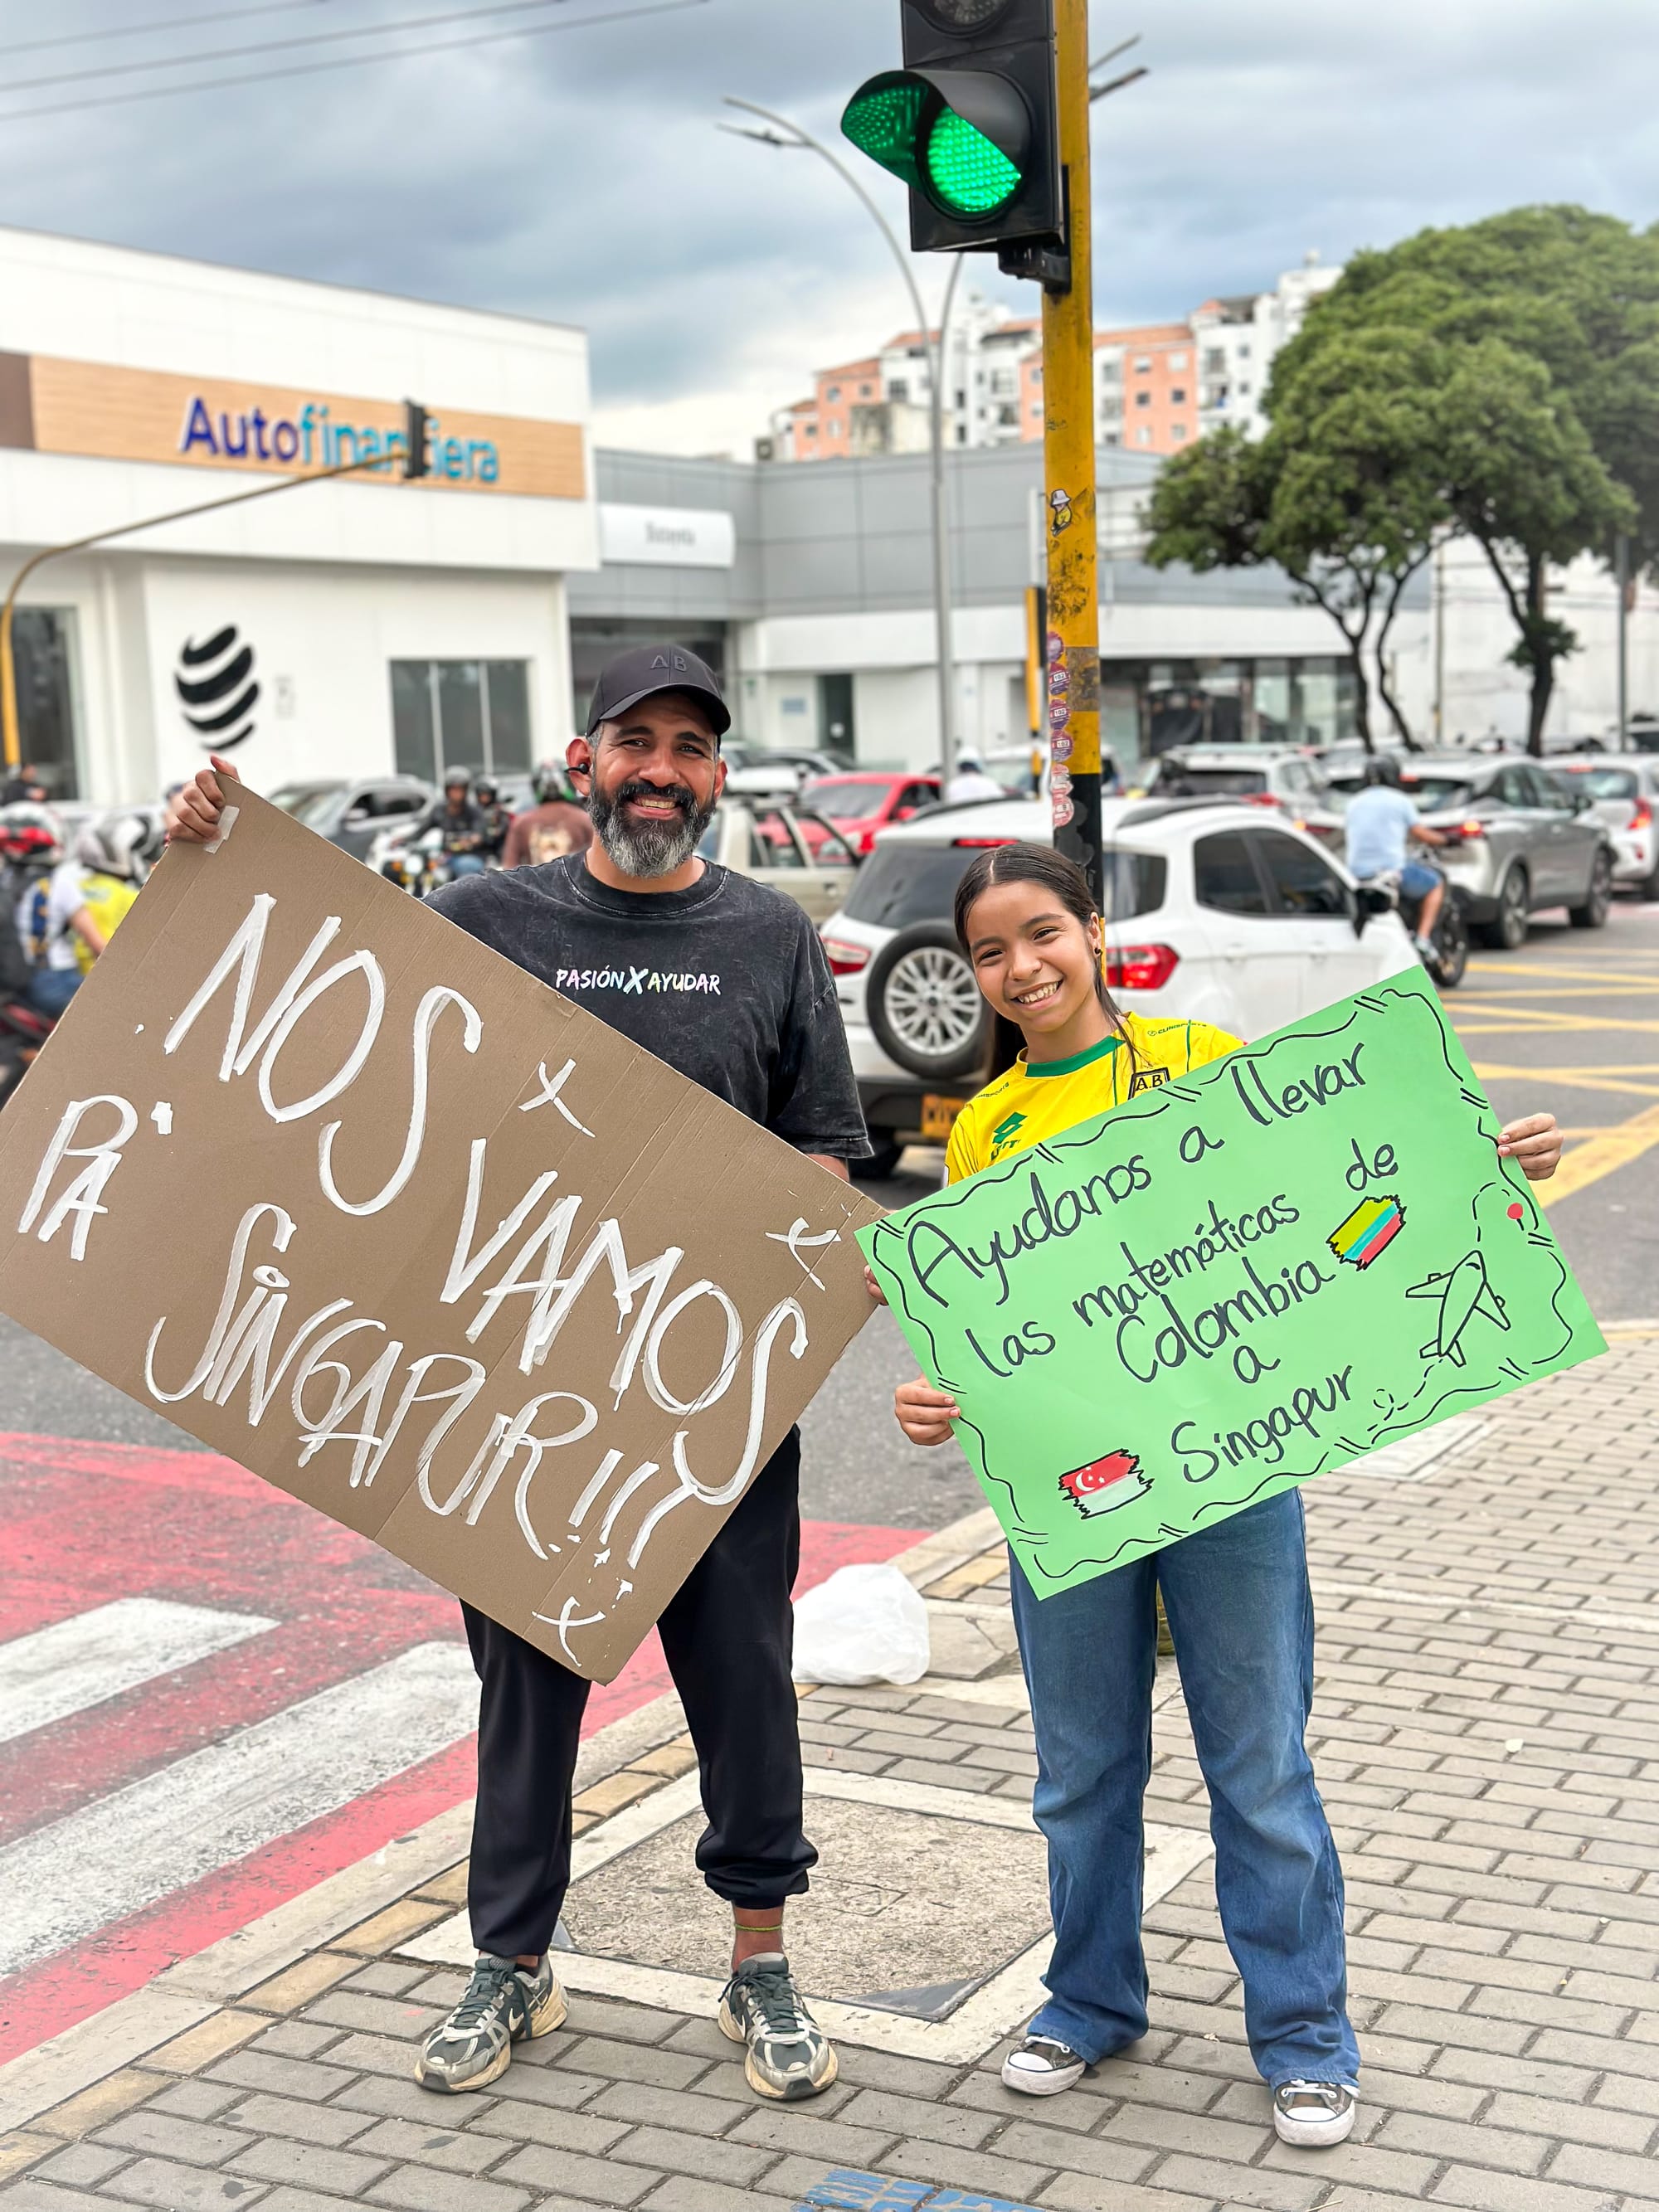 Autofinanciera
AB
PASIÓN X AYUDAR
NOS VAMOS
PA'
SINGAPUR!!!
A.B
Ayudanos a llevar
las matemáticas de
Colombia
a
Singapur